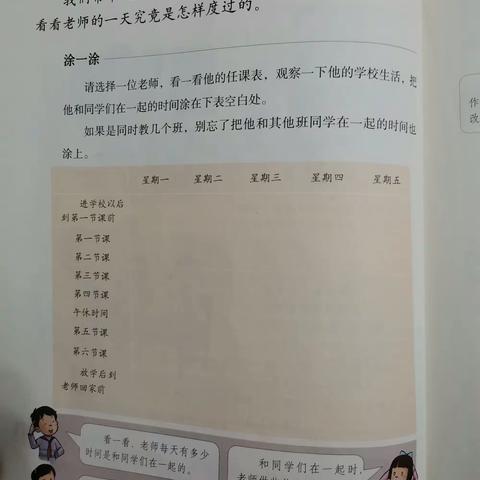 看看老师的一天究竟是怎样度过的。
涂一涂
请选择一位老师，看一看他的任课表，观察一下他的学校生活，把
他和同学们在一起的时间涂在下表空白处。
如果是同时教几个班，别忘了把他和其他班同学在一起的时间也
涂上。
星期一 星期二 星期三 星期四 星期五
进学校以后
到第一节课前
第一节课
第二节课
第三节课
第四节课
午休时间
第五节课
第六节课
放学后到
老师回家前
看一看，老师每天有多少
时间是和同学们在一起的。
和同学们在一起时，
作
改